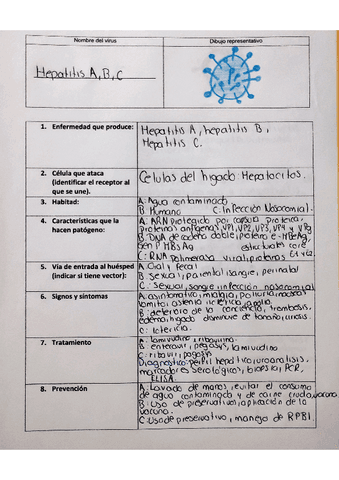 Nombre del virus
Dibujo representativo
Hepatitis A, B, C
1. Enfermedad que produce:
Hepatitis A, hepatitis B,
Hepatitis C.
2. Célula que ataca
(identificar el receptor al
que se une).
Celulas del higado: Hepatocitos.
3. Habitad:
A: Agua contaminada
B: Humano C: Infección Nosocomial.
4. Características que la
hacen patógeno:
A: ARN protegido por capsula proteica,
proteinas antigenas, VP1, VP2, VP3, VP4 y VPg
B: DNA de cadena doble, proteina e-HBeAg,
gen P HBsAg estructurales core
C: RNA Polimerasa viral proteinas E1 y E2.
5. Vía de entrada al huésped
(indicar si tiene vector):
A: Oral y fecal
B: Sexual, parental (sangre, perinatal
C: Sexual, sangre infección nosocomial
6. Signos y síntomas
A: asintomatico, mialgia, nauseas
vomito, astenia, ictericia
B: deterioro de la conciencia, trombosis,
edema, higado disminuye de tamaño,
C: Ictericia.
7. Tratamiento
A: lamivudina
B: entecavir, pegasys, lamivudina
C: ribavir, pegasys
Diagnostico: perfil hepatico,
marcadores serologicos, biopsia, PCR,
ELISA.
8. Prevención
A: Lavado de manos, evitar el consumo
de agua contaminada y de carne cruda,
B: Uso de preservativo, aplicación de la
vacuna.
C: Uso de preservativo, manejo de RPBI.